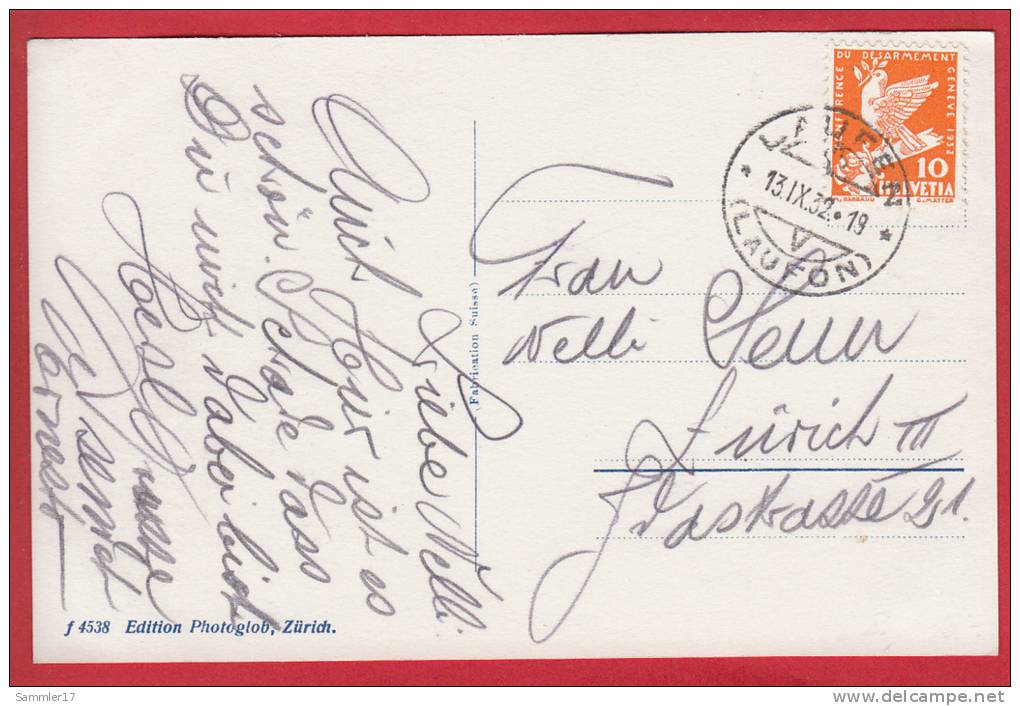 Liebe Nelli
Auch hier ist es
schön. Schade dass
Du nicht dabei bist
Herzl.
Ernest
f 4538 Edition Photoglob, Zürich.
(Fabrication Suisse)
CONFERENCE DU DESARMEMENT GENEVE 1932
10
HELVETIA
G. MATTER
(LAUFON)
13.IX.32.19
V
Frau
Nelli
Zürich III
Sammler17
delcampe.net